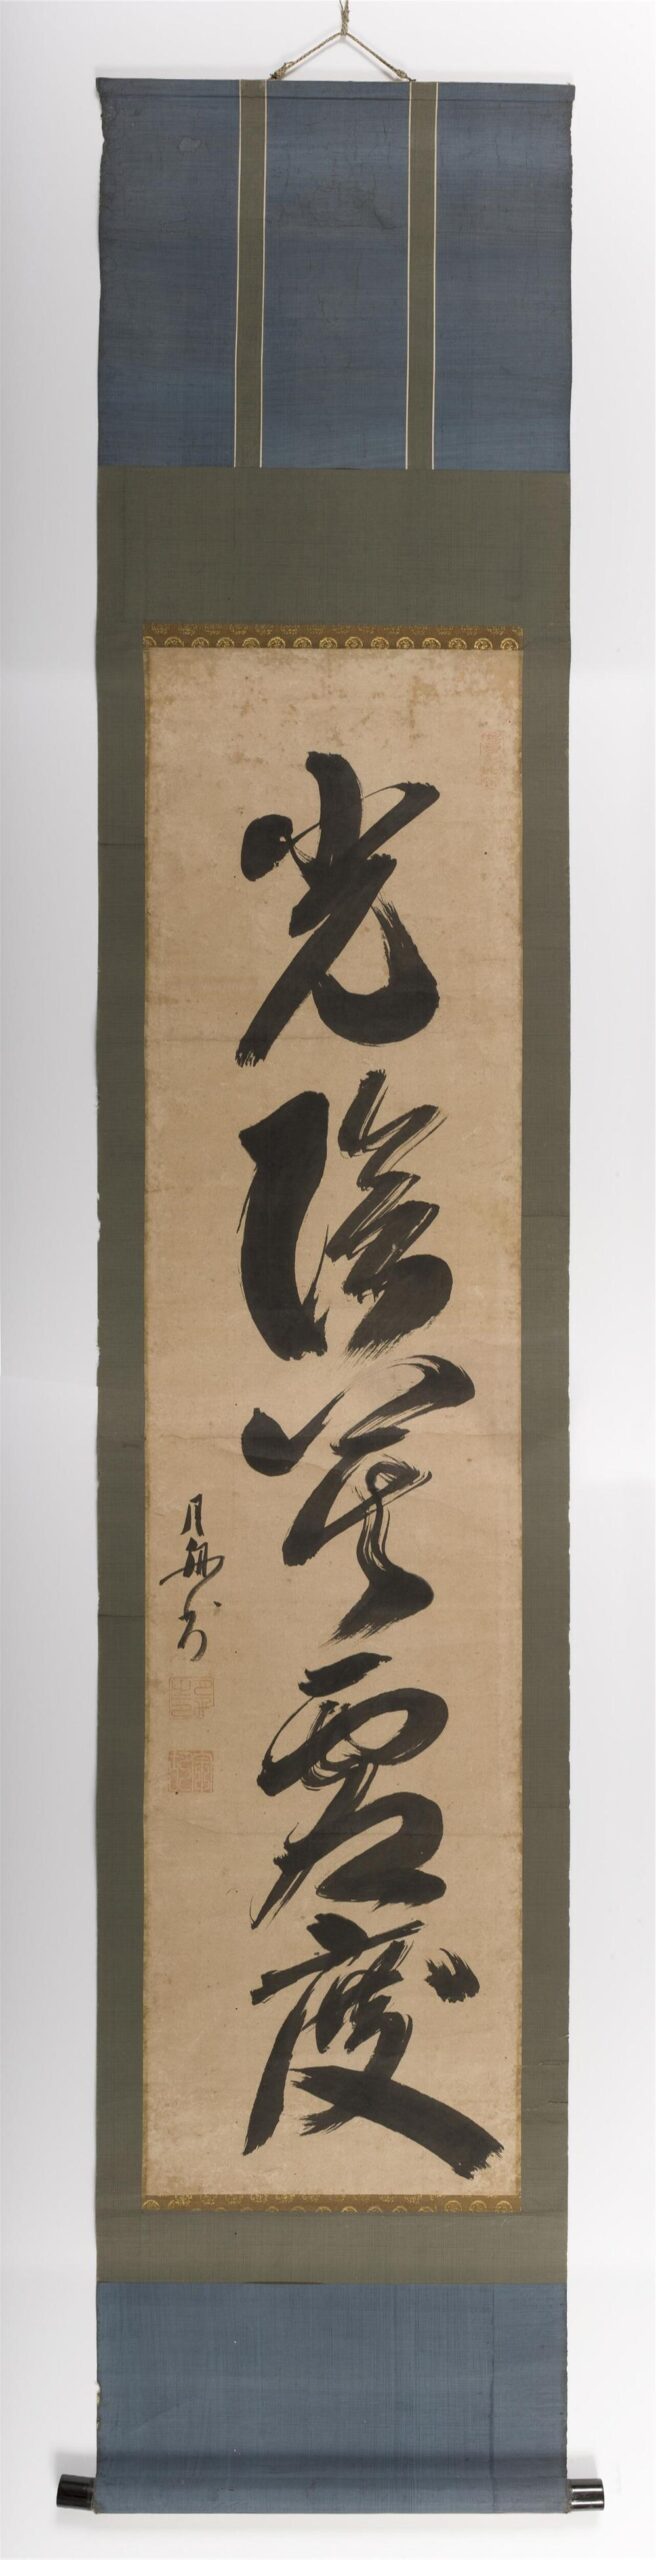 光陰莫虚度
月舟書